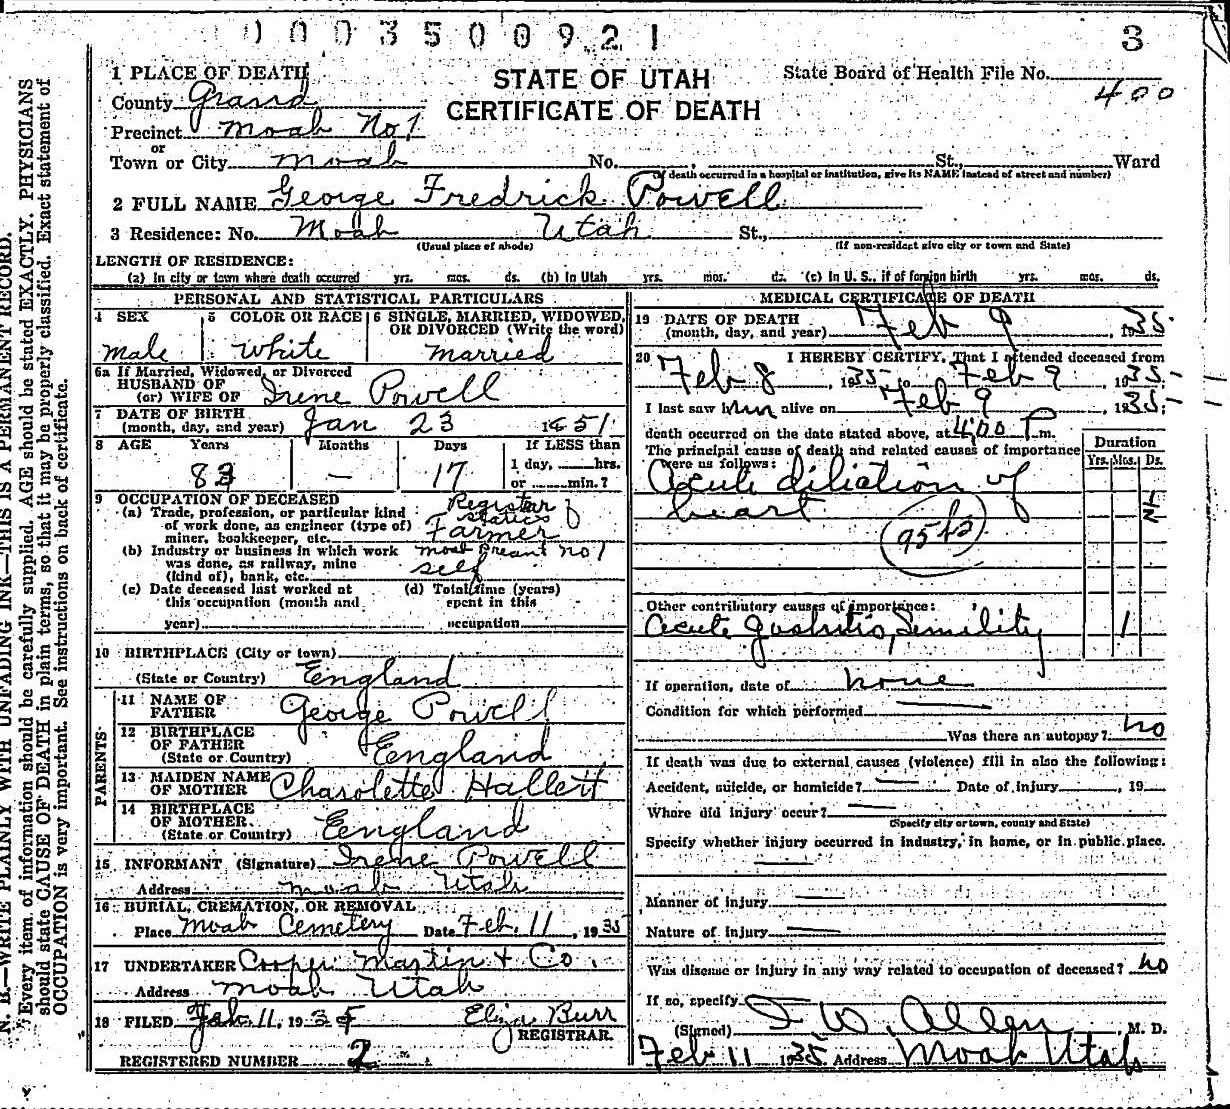 0003500921 3
1 PLACE OF DEATH
STATE OF UTAH
CERTIFICATE OF DEATH
State Board of Health File No.
400
County Grand
Precinct Moab No 1
or
Town or City Moab No. , St., Ward
(If death occurred in a hospital or institution, give its NAME instead of street and number)
2 FULL NAME George Fredrick Powell
3 Residence: No. Moab Utah St.,
(Usual place of abode) (If non-resident give city or town and State)
LENGTH OF RESIDENCE:
(a) In city or town where death occurred yrs. mos. ds. (b) In Utah yrs. mos. ds. (c) In U. S., if of foreign birth yrs. mos. ds.
PERSONAL AND STATISTICAL PARTICULARS
4 SEX
Male
5 COLOR OR RACE
White
6 SINGLE, MARRIED, WIDOWED,
OR DIVORCED (Write the word)
married
6a If Married, Widowed, or Divorced
HUSBAND OF
(or) WIFE OF Irene Powell
7 DATE OF BIRTH
(month, day, and year) Jan 23 1851
8 AGE Years Months Days If LESS than
1 day, hrs.
or min.?
— 17
9 OCCUPATION OF DECEASED
(a) Trade, profession, or particular kind
of work done, as engineer (type of)
miner, bookkeeper, etc.
Registar
Farmer
(b) Industry or business in which work
was done, as railway, mine
(kind of), bank, etc.
No 1
self
(c) Date deceased last worked at
this occupation (month and
year)
(d) Total time (years)
spent in this
occupation
10 BIRTHPLACE (City or town)
(State or Country) England
PARENTS
11 NAME OF
FATHER George Powell
12 BIRTHPLACE
OF FATHER
(State or Country) Eengland
13 MAIDEN NAME
OF MOTHER Charolette Hallett
14 BIRTHPLACE
OF MOTHER
(State or Country) Eengland
15 INFORMANT (Signature) Irene Powell
Address Moab Utah
16 BURIAL, CREMATION, OR REMOVAL
Place Moab Cemetery Date Feb. 11, 1935
17 UNDERTAKER Cooper Martin & Co.
Address Moab Utah
18 FILED Feb. 11, 1935 Eliza Burr
REGISTRAR.
REGISTERED NUMBER 2
MEDICAL CERTIFICATE OF DEATH
19 DATE OF DEATH
(month, day, and year) Feb 9, 1935
20 I HEREBY CERTIFY, That I attended deceased from
Feb 8, 1935 to Feb 9, 1935
I last saw him alive on Feb 9, 1935
death occurred on the date stated above, at 4:00 P m.
The principal cause of death and related causes of importance
were as follows:
Duration
Yrs. Mos. Ds.
Acute diliation of
heart
Other contributory causes of importance:
Acute gastritis, Semility 1
If operation, date of none
Condition for which performed
Was there an autopsy? no
If death was due to external causes (violence) fill in also the following:
Accident, suicide, or homicide? Date of injury , 19
Where did injury occur?
(Specify city or town, county and State)
Specify whether injury occurred in industry, in home, or in public place.
Manner of injury
Nature of injury
Was disease or injury in any way related to occupation of deceased? no
If so, specify
(Signed) I W. Allen, M. D.
Feb 11 1935 Address Moab Utah
N. B.—WRITE PLAINLY WITH UNFADING INK—THIS IS A PERMANENT RECORD.
Every item of information should be carefully supplied. AGE should be stated EXACTLY. PHYSICIANS
should state CAUSE OF DEATH in plain terms, so that it may be properly classified. Exact statement of
OCCUPATION is very important. See instructions on back of certificate.